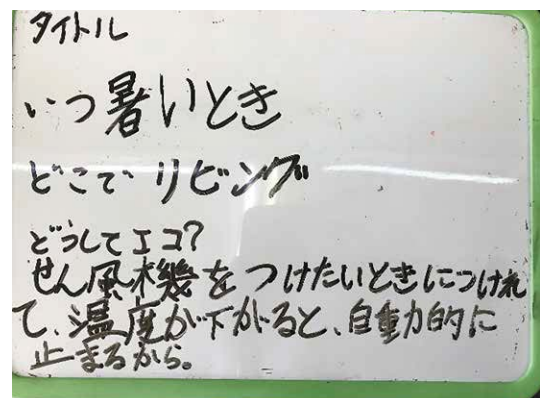 タイトル
いつ暑いとき
どこでリビング
どうしてエコ?
せん風機をつけたいときにつけれ
て、温度が下がると、自動的に
止まるから。